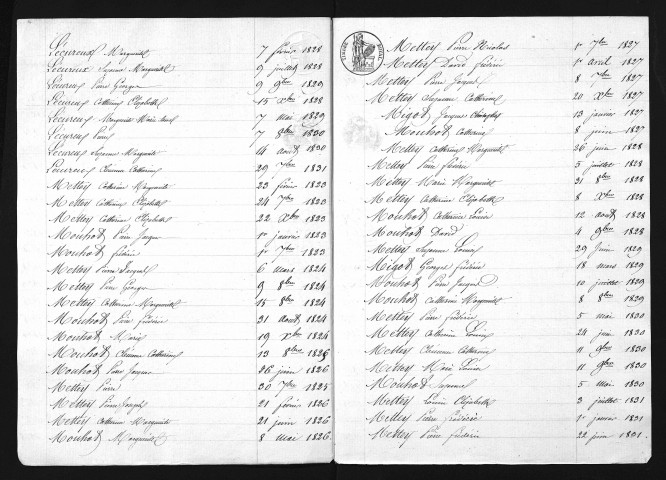 Lécureux Marguerite 7 février 1828
Lécureux Suzanne Marguerite 9 juillet 1828
Lécureux Pierre George 9 9bre 1829
Lécureux Catherine Elizabeth 15 Xbre 1828
Lécureux Marguerite Marie 7 mai 1829
Lécureux Pierre 7 8bre 1830
Lécureux Suzanne Marguerite 4 août 1830
Lécureux Catherine 29 7bre 1831
Mettey Catherine Marguerite 23 février 1823
Mettey Catherine Elizabeth 26 7bre 1823
Mettey Catherine Elizabeth 22 Xbre 1823
Mouhot Pierre Jacques 1er janvier 1823
Mouhot Frédéric 1er 7bre 1823
Mettey Pierre Jacques 6 mars 1824
Mettey Pierre George 9 8bre 1824
Mettey Catherine Marguerite 15 8bre 1824
Mouhot Pierre Frédéric 31 août 1824
Mouhot Marie 19 Xbre 1824
Mouhot Catherine 13 8bre 1826
Mouhot Pierre Jacques 26 juin 1826
Mettey Pierre 30 7bre 1825
Mettey Pierre Jacques 21 février 1826
Mettey Catherine Marguerite 21 juin 1826
Mouhot Marguerite 8 mai 1826
TIMBRE ROYAL
Mettey Pierre Nicolas 1er 7bre 1827
Mettey David Frédéric 1er avril 1827
Mettey Pierre Jacques 8 7bre 1827
Mettey Suzanne Catherine 20 Xbre 1827
Migot Jacques Christophe 13 janvier 1827
Mouhot Catherine 8 juin 1827
Mettey Catherine Marguerite 26 juin 1828
Mettey Pierre Frédéric 5 juillet 1828
Mettey Marie Marguerite 31 8bre 1828
Mettey Catherine Elizabeth 8 Xbre 1828
Mouhot Catherine Louise 12 août 1828
Mouhot David 4 9bre 1828
Mettey Suzanne Louise 29 juin 1829
Migot George Frédéric 18 mars 1829
Mouhot Pierre Jacques 10 juillet 1829
Mouhot Catherine Marguerite 8 8bre 1829
Mettey Pierre Frédéric 5 mai 1830
Mettey Catherine Louise 24 juin 1830
Mettey Catherine 11 9bre 1830
Mettey Marie Louise 11 9bre 1830
Mouhot Suzanne 5 mai 1830
Mettey Louise Elizabeth 3 juillet 1831
Mettey Pierre Frédéric 1er janvier 1831
Mettey Pierre Frédéric 22 juin 1831.